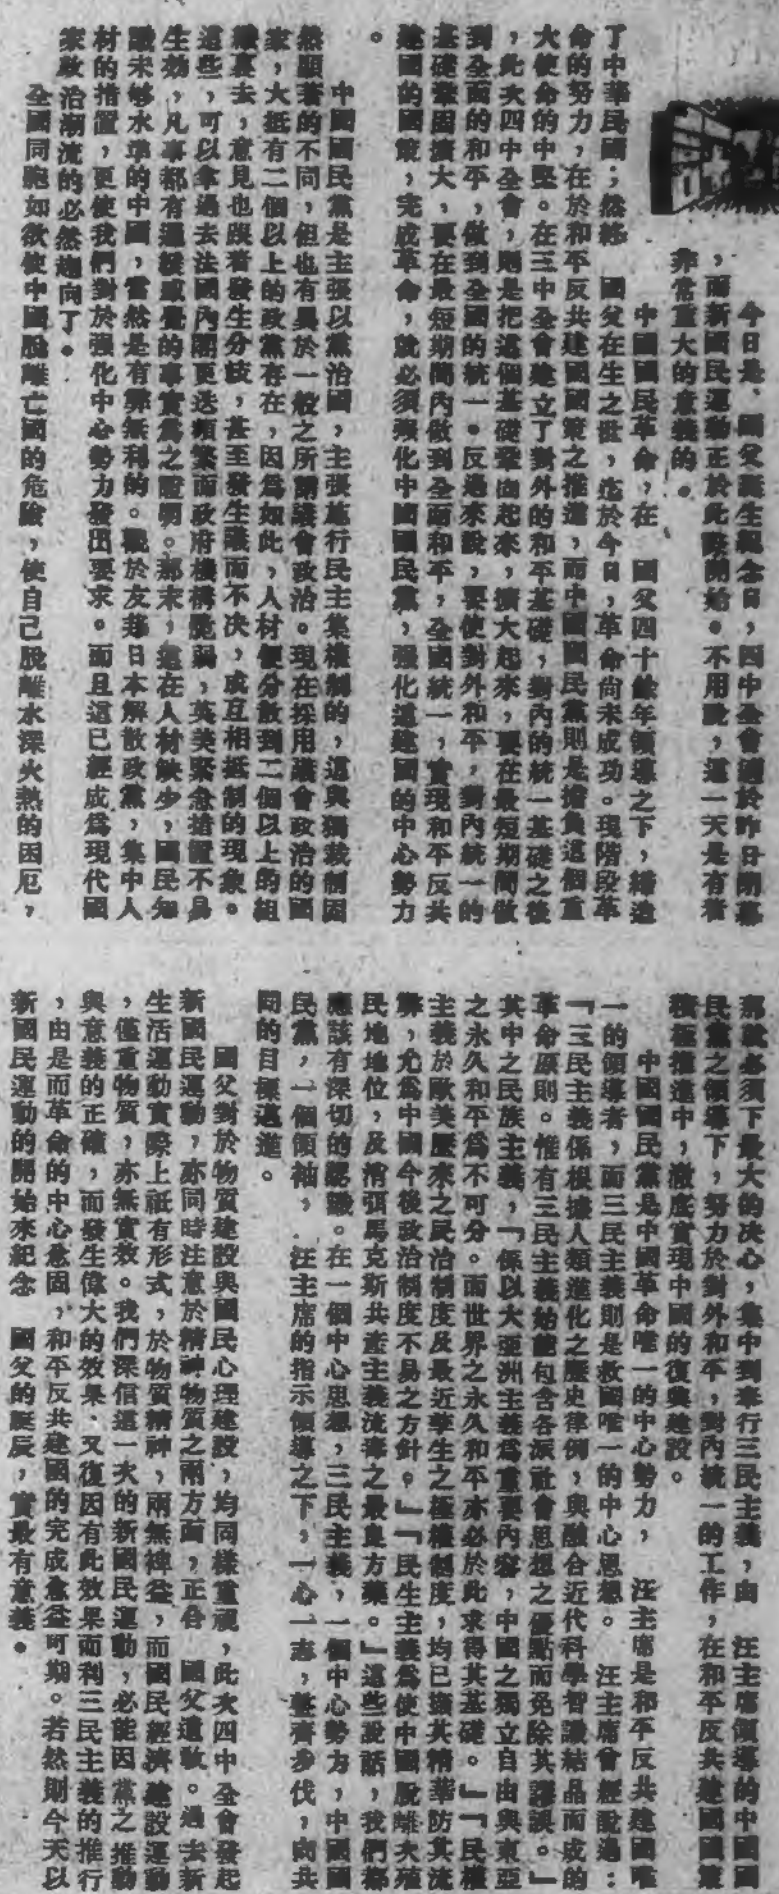 今日是　國父誕生紀念日，四中全會適於昨日閉幕
，而新國民運動正於此際開始。不用說，這一天是有着
非常重大的意義的。
中國國民革命，在　國父四十餘年領導之下，締造
了中華民國；然終　國父在生之世，迄於今日，革命尚未成功。現階段革
命的努力，在於和平反共建國國策之推進，而中國國民黨則是擔負這個重
大使命的中堅。在三中全會建立了對外的和平基礎，對內的統一基礎之後
，此次四中全會，則是把這個基礎鞏固起來，擴大起來，要在最短期間做
到全面的和平，做到全國的統一。反過來說，要使對外和平，對內統一的
基礎鞏固擴大，要在最短期間內做到全面和平，全國統一，實現和平反共
建國的國策，完成革命，就必須強化中國國民黨，強化這建國的中心勢力
。
中國國民黨是主張以黨治國，主張施行民主集權制的，這與獨裁制固
然顯著的不同，但也有異於一般之所謂議會政治。現在採用議會政治的國
家，大抵有二個以上的政黨存在，因爲如此，人材便分散到二個以上的組
織裏去，意見也跟着發生分歧，甚至發生議而不决，或互相抵制的現象。
這些，可以拿過去法國內閣更迭頻繁而政府機構脆弱，英美緊急措置不易
生効，凡事都有遲緩感覺的事實爲之證明。那末，這在人材缺少，國民知
識未够水準的中國，當然是有弊無利的。觀於友邦日本解散政黨，集中人
材的措置，更使我們對於強化中心勢力發出要求。而且這已經成爲現代國
家政治潮流的必然趨向了。
全國同胞如欲使中國脫離亡國的危險，使自己脫離水深火熱的困厄，
那就必須下最大的决心，集中到奉行三民主義，由　汪主席領導的中國國
民黨之領導下，努力於對外和平，對內統一的工作，在和平反共建國國策
積極推進中，澈底實現中國的復興建設。
中國國民黨是中國革命唯一的中心勢力，　汪主席是和平反共建國唯
一的領導者，而三民主義則是救國唯一的中心思想。　汪主席曾經說過：
「三民主義係根據人類進化之歷史律例，與融合近代科學智識結晶而成的
革命原則。惟有三民主義始能包含各派社會思想之優點而免除其謬誤。」
其中之民族主義，「係以大亞洲主義爲重要內容，中國之獨立自由與東亞
之永久和平爲不可分。而世界之永久和平亦必於此求得其基礎。」「民權
主義於歐美歷來之民治制度及最近孳生之極權制度，均已擷其精華防其流
弊，尤爲中國今後政治制度不易之方針。」「民生主義爲使中國脫離次殖
民地地位，及消弭馬克斯共產主義流毒之最良方藥。」這些說話，我們都
應該有深切的認識。在一個中心思想，三民主義，一個中心勢力，中國國
民黨，一個領袖，　汪主席的指示領導之下，一心一志，整齊步伐，向共
同的目標邁進。
國父對於物質建設與國民心理建設，均同樣重視，此次四中全會發起
新國民運動，亦同時注意於精神物質之兩方面，正合　國父遺敎。過去新
生活運動實際上祇有形式，於物質精神，兩無裨益，而國民經濟建設運動
，僅重物質，亦無實效。我們深信這一次的新國民運動，必能因黨之推動
與意義的正確，而發生偉大的效果，又復因有此效果而利三民主義的推行
，由是而革命的中心愈固，和平反共建國的完成愈益可期。若然則今天以
新國民運動的開始來紀念　國父的誕辰，實最有意義。